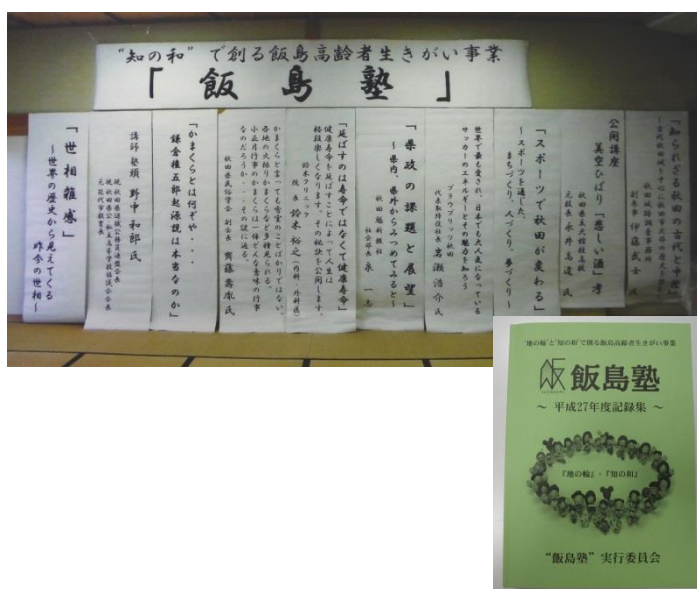 "知の和" で創る飯島高齢者生きがい事業
「飯島塾」
「知られざる秋田の古代と中世」
秋田城跡調査事務所
副参事 伊藤武士 氏
公開講座
美空ひばり「悲しい酒」考
秋田県立大館桂高校
元校長 永井高道 氏
「スポーツで秋田が変わる」
~スポーツを通した、
まちづくり、人づくり、夢づくり~
世界で最も愛され、日本でも大人気になっている
サッカーのエネルギーとその魅力を知ろう
ブラウブリッツ秋田
代表取締役社長 岩瀬浩介氏
「県政の課題と展望」
~県内、県外からみつめてみると~
秋田魁新報社
社会部長 泉 一志
「延ばすのは寿命ではなくて健康寿命」
健康寿命を延ばすことによって人生は
格段楽しくなります。その秘訣を公開します。
鈴木クリニック
院長 鈴木裕之(内科・外科医)
かまくらと言っても雪室のことばかりではない。
各地の火振りかまくらなど多種見られる。
小正月行事のかまくらは一体どんな意味の行事
なのだろうか・・・その謎に迫る。
秋田県民俗学会 副会長 齊藤壽胤氏
「かまくらとは何ぞや・・・
鎌倉権五郎起源説は本当なのか」
講師 塾頭 野中和郎氏
「世相雑感」
~世界の歴史から見えてくる
昨今の世相~
"地の輪"と"知の和"で創る飯島高齢者生きがい事業
飯島塾
~ 平成27年度記録集 ~
『地の輪』・『知の和』
"飯島塾" 実行委員会